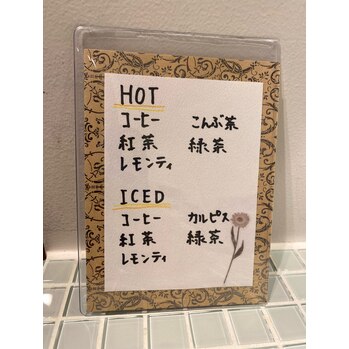 HOT
コーヒー こんぶ茶
紅茶 緑茶
レモンティ
ICED
コーヒー カルピス
紅茶 緑茶
レモンティ